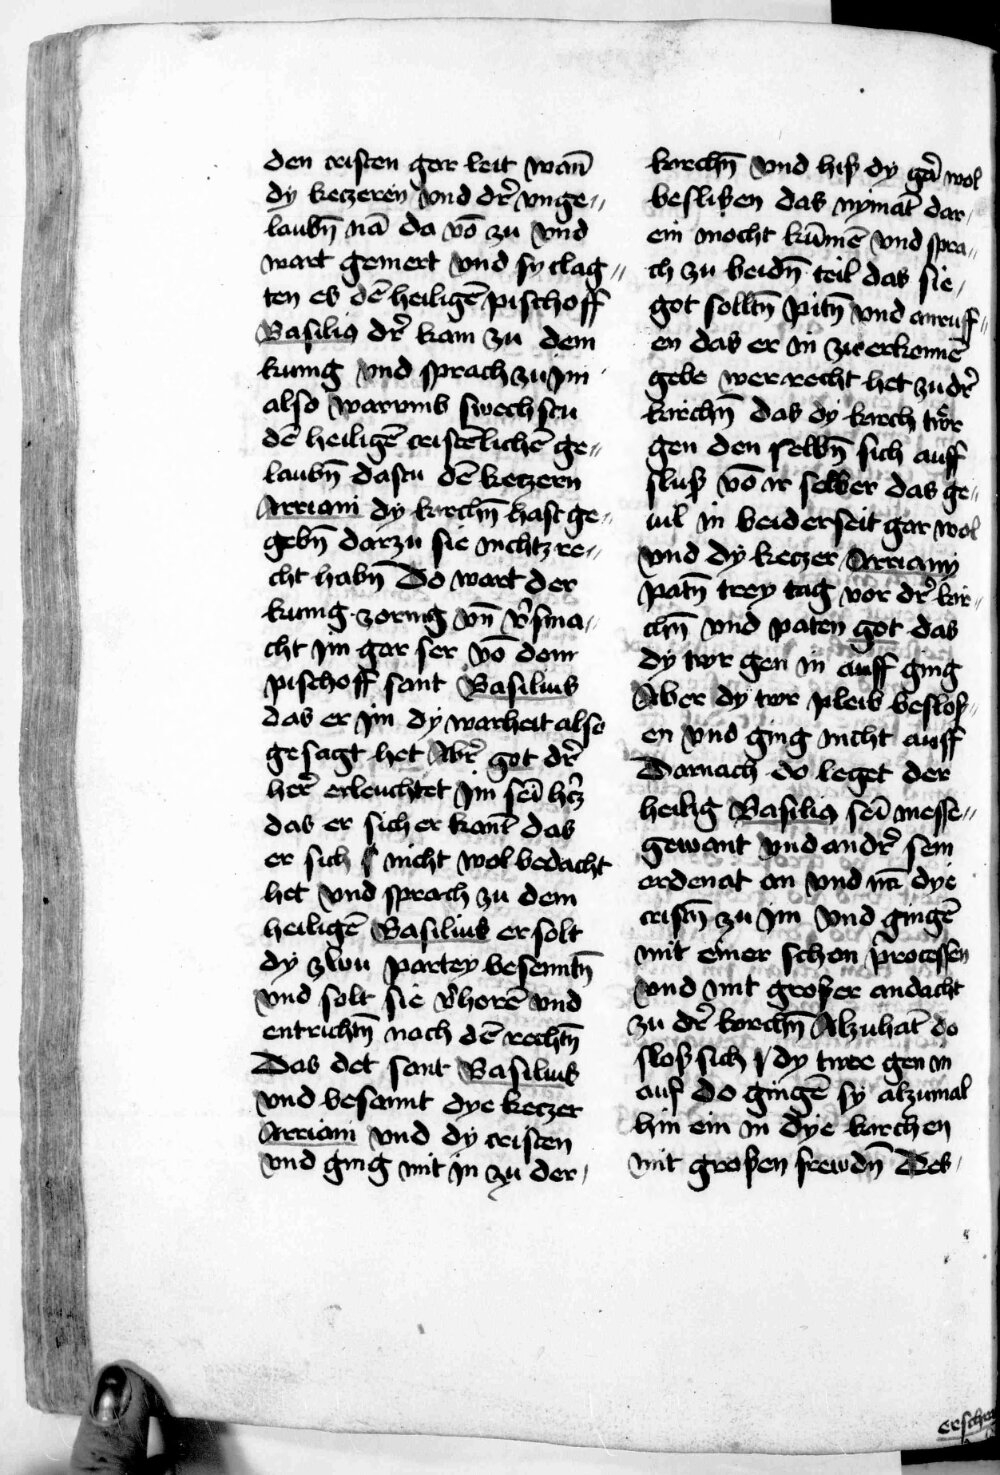 den cristen gar leit wan̄
dy ketzereÿ vnd dr̄ vnge〃
laubn̄ nā da vō zu vnd
wart gemert vnd sy clag〃
ten es dē heiligē pischoff
Basiliꝯ dr̄ kam zu dem
kunig vnd sprach zu jm
also warvmb swechstu
dē heiligē cristēlichē ge〃
laubn̄ dastu dē ketzern
Arriani dy kirchn̄ hast ge〃
gebn̄ darzu sie nichtz re〃
cht habn̄ Do wart der
kunig zornig vn̄ v̄sma〃
cht jm gar ser vō dem
pischoff sant Basilius
das er jm dy warheit also
gesagt het Abr̄ got dr̄
her̄ erleuchtet jm seī hr̄tz
das er sich erkant das
er sich nicht wol bedacht
het vnd sprach zu dem
heiligē Basilius er solt
dy zwu partey besenntn̄
vnd solt sie v̄horē vnd
entrichtn̄ nach dē rechtn̄
Das det sant Basilius
vnd besannt dye ketzer
Arriani vnd dy cristen
vnd ging mit in zu der〃
kirchn̄ vnd hiß dy gā wol
besließen das nymāt dar〃
ein mocht kūmē vnd spra〃
ch zu beidn̄ teil das sie〃
got solltn̄ pitn̄ vnd anruff〃
en das er in zu erkennē
gebe wer recht het zu dr̄
kirchn̄ das dy kirch twr̄
gen den selbn̄ sich auff
sluß vō ir selber das ge〃
uil in beiderseit gar wol
vnd dy ketzer Arriany
patn̄ trey tag vor dr̄ kir〃
chn̄ vnd paten got das
dy twr gen in auff ging
Aber dy twr pleib besloß〃
en vnd ging nicht auff
Darnach do leget der
heilig Basiliꝯ seī messe〃
gewant vnd andr̄ sein
ordenat an vnd nā dye
cristn̄ zu jm vnd gingē
mit einer schon processen
vnd mit großer andacht
zu dr̄ kirchn̄ Alzuhāt do
sloß sich dy twre gen in
auf do gingē sy alzumal
hin ein in dye kirchen
mit großen frewdn̄ Des〃